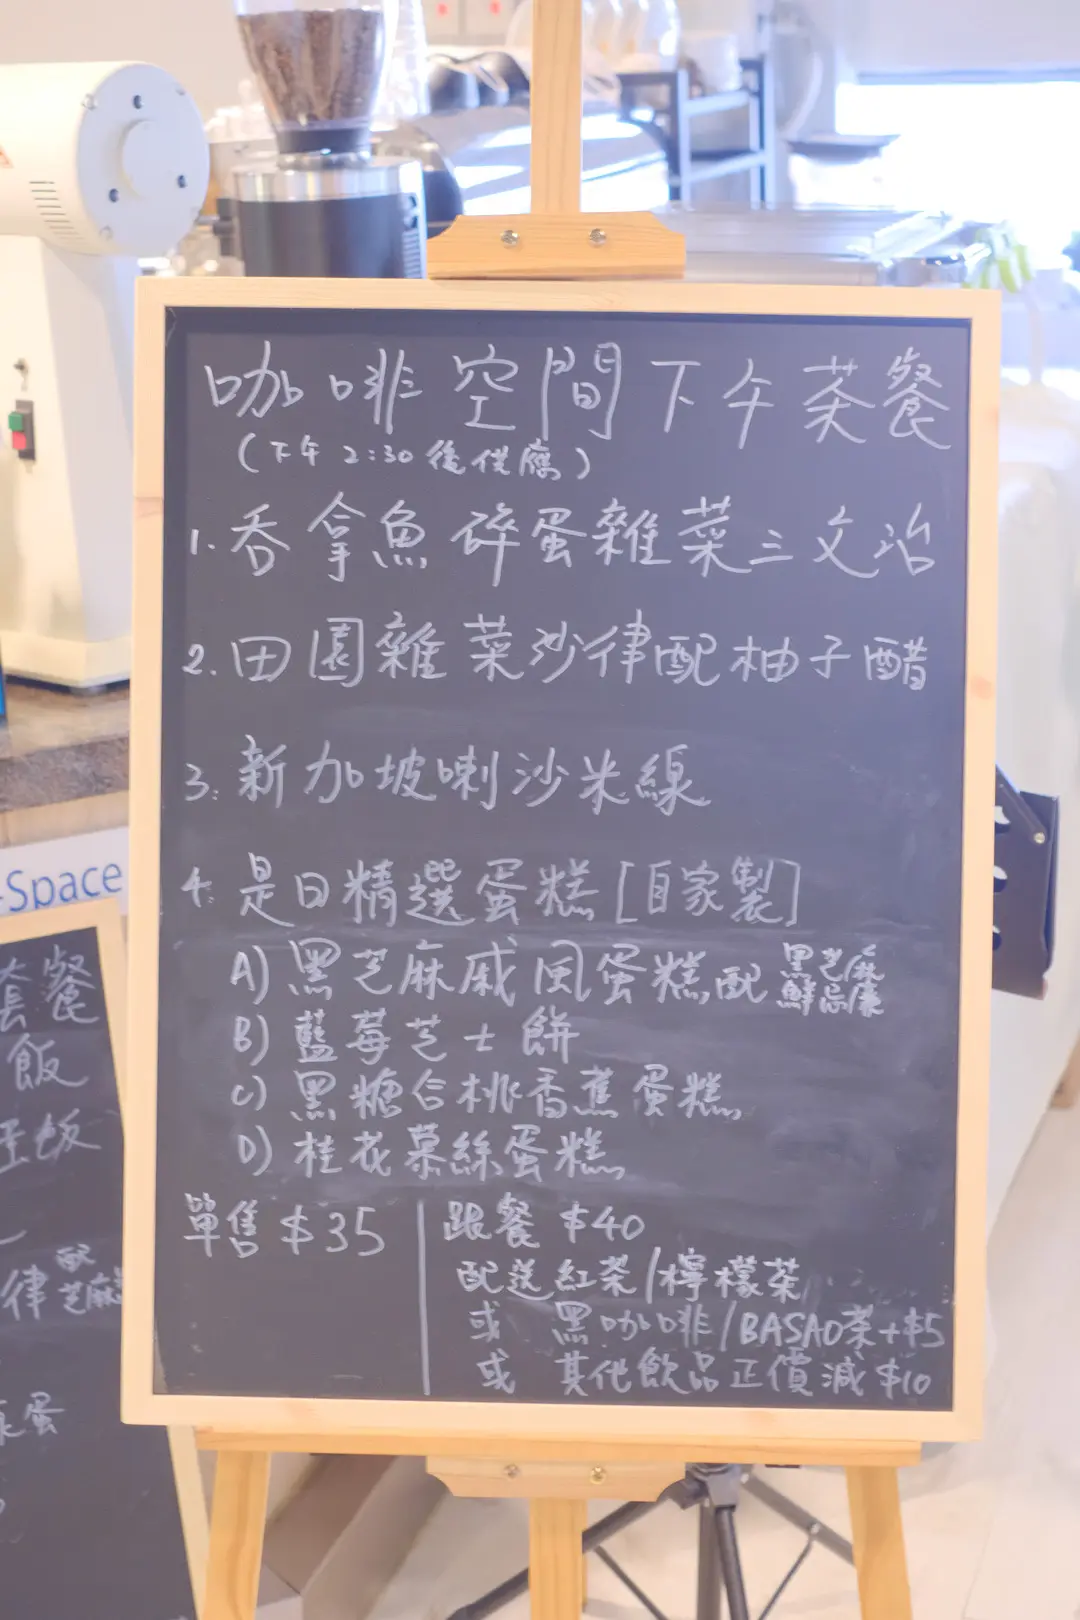 咖啡空間下午茶餐
(下午2:30後供應)
1. 吞拿魚碎蛋雜菜三文治
2. 田園雜菜沙律配柚子醋
3. 新加坡喇沙米線
4. 是日精選蛋糕[自家製]
A) 黑芝麻戚風蛋糕配黑芝麻鮮忌廉
B) 藍莓芝士餅
C) 黑糖合桃香蕉蛋糕
D) 桂花慕絲蛋糕
單售 $35
跟餐 $40
配送紅茶/檸檬茶
或 黑咖啡/BASAO茶+$5
或 其他飲品正價減$10
-Space
套餐
飯
飯
律配芝麻
蛋